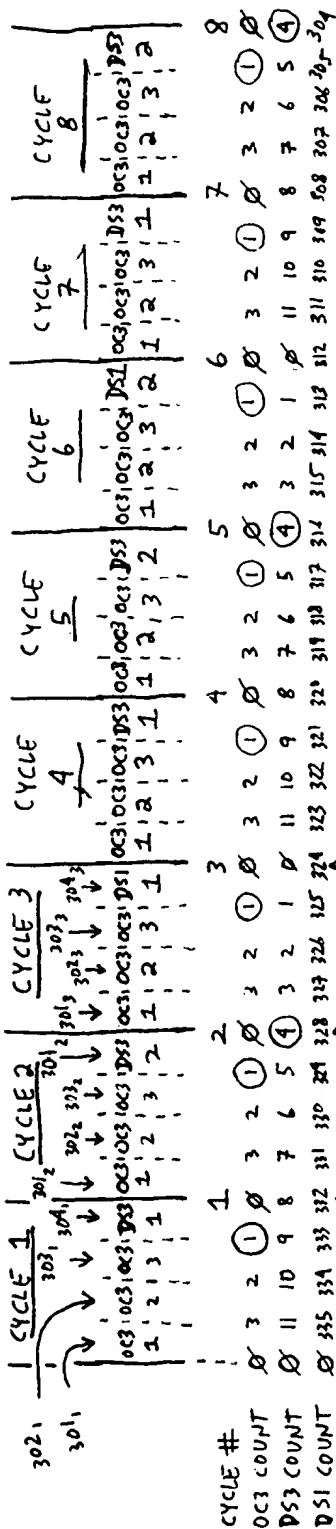 CYCLE 1 CYCLE 2 CYCLE 3 CYCLE 4 CYCLE 5 CYCLE 6 CYCLE 7 CYCLE 8
302₁ 303₁ 301₂ 301₂
301₁ 304₁ 302₂ 303₂ 301₃ 302₃ 303₃ 304₃
OC3 OC3 OC3 DS3 OC3 OC3 OC3 DS3 OC3 OC3 OC3 DS1 OC3 OC3 OC3 DS3 OC3 OC3 OC3 DS3 OC3 OC3 OC3 DS1 OC3 OC3 OC3 DS3 OC3 OC3 OC3 DS3
1 2 3 1 1 2 3 2 1 2 3 1 1 2 3 1 1 2 3 2 1 2 3 2 1 2 3 1 1 2 3 2
CYCLE # 1 2 3 4 5 6 7 8
OC3 COUNT Ø 3 2 1 Ø 3 2 1 Ø 3 2 1 Ø 3 2 1 Ø 3 2 1 Ø 3 2 1 Ø 3 2 1 Ø 3 2 1 Ø
DS3 COUNT Ø 11 10 9 8 7 6 5 4 3 2 1 Ø 11 10 9 8 7 6 5 4 3 2 1 Ø 11 10 9 8 7 6 5 4
DS1 COUNT Ø 335 334 333 332 331 330 329 328 327 326 325 324 323 322 321 320 319 318 317 316 315 314 313 312 311 310 309 308 307 306 305 304